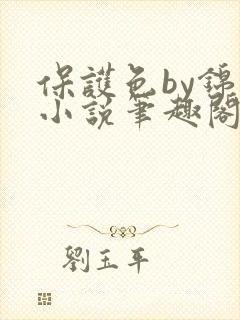 保護色by錦
小說筆趣閣
劉玉平